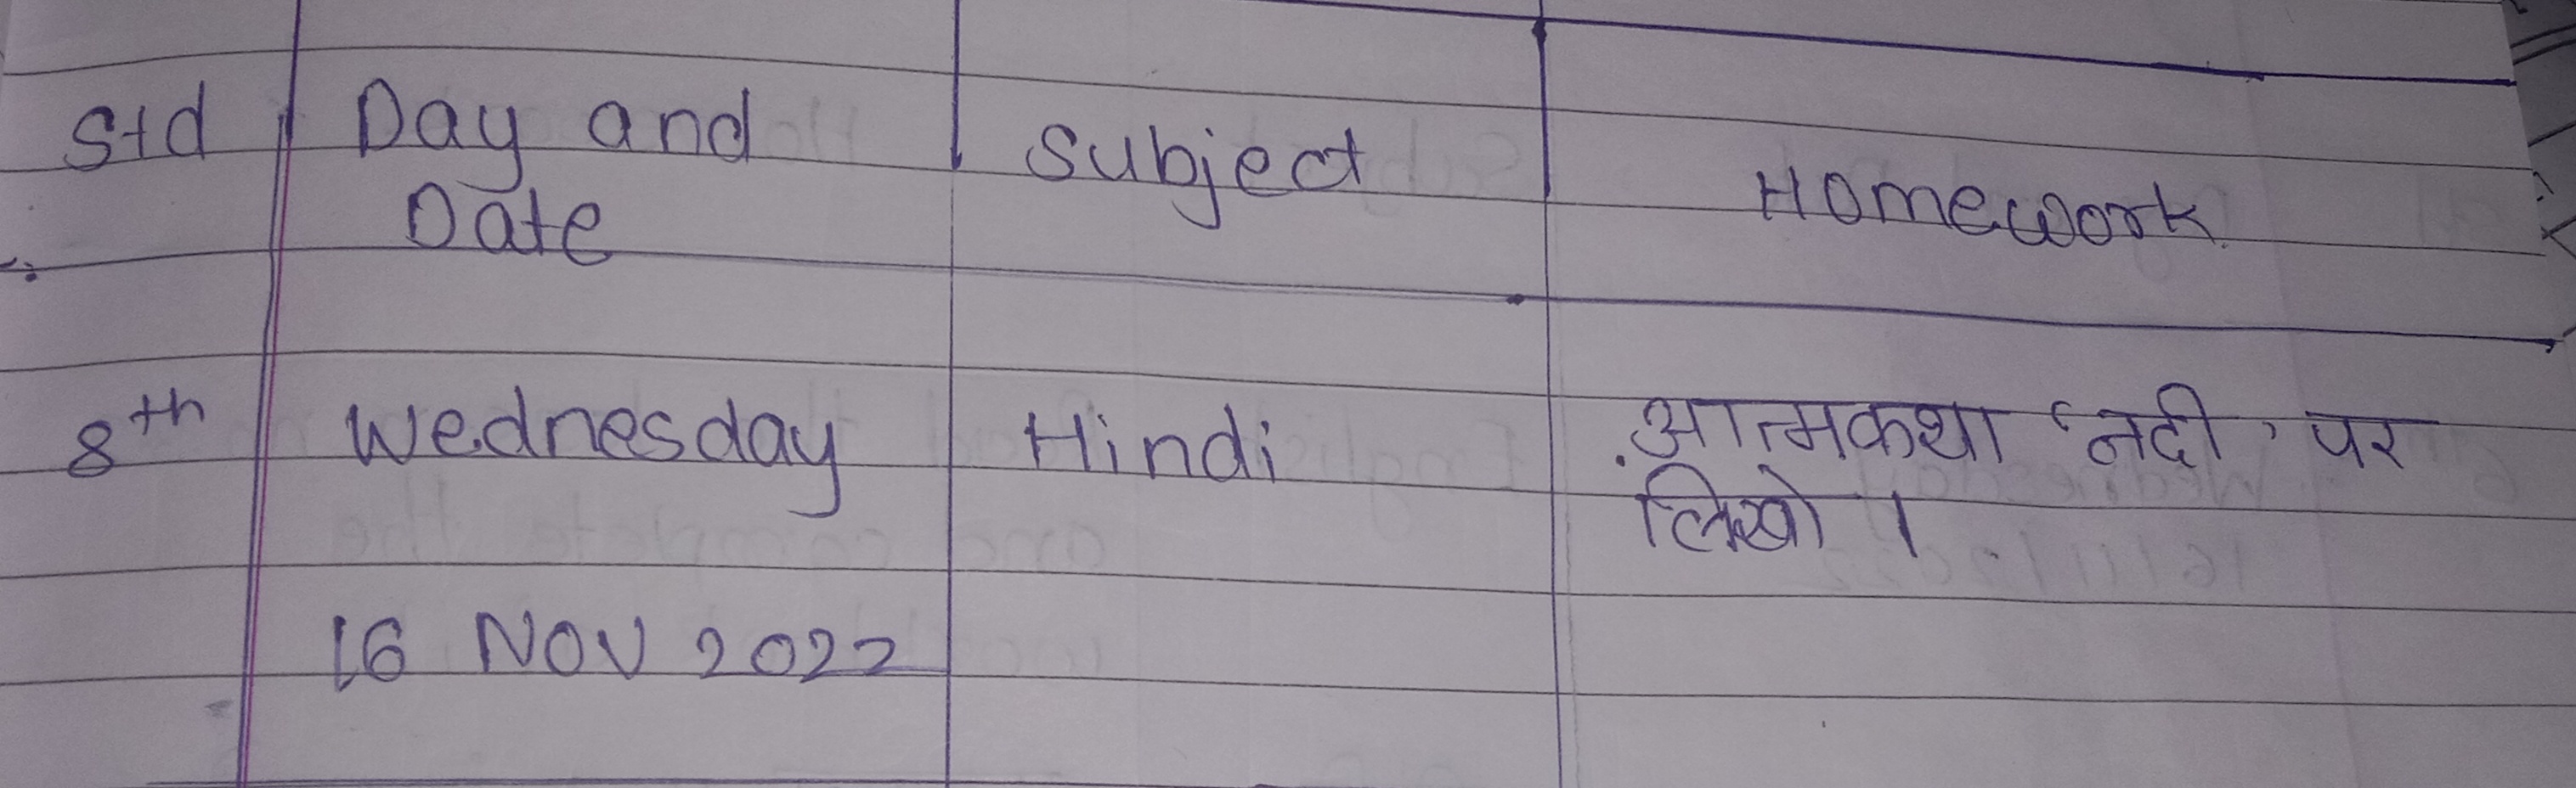 Std Day and Subject Homework
Date
8th Wednesday Hindi आत्मकथा ‘नदी’ पर
लिखो ।
16 NOV 2022